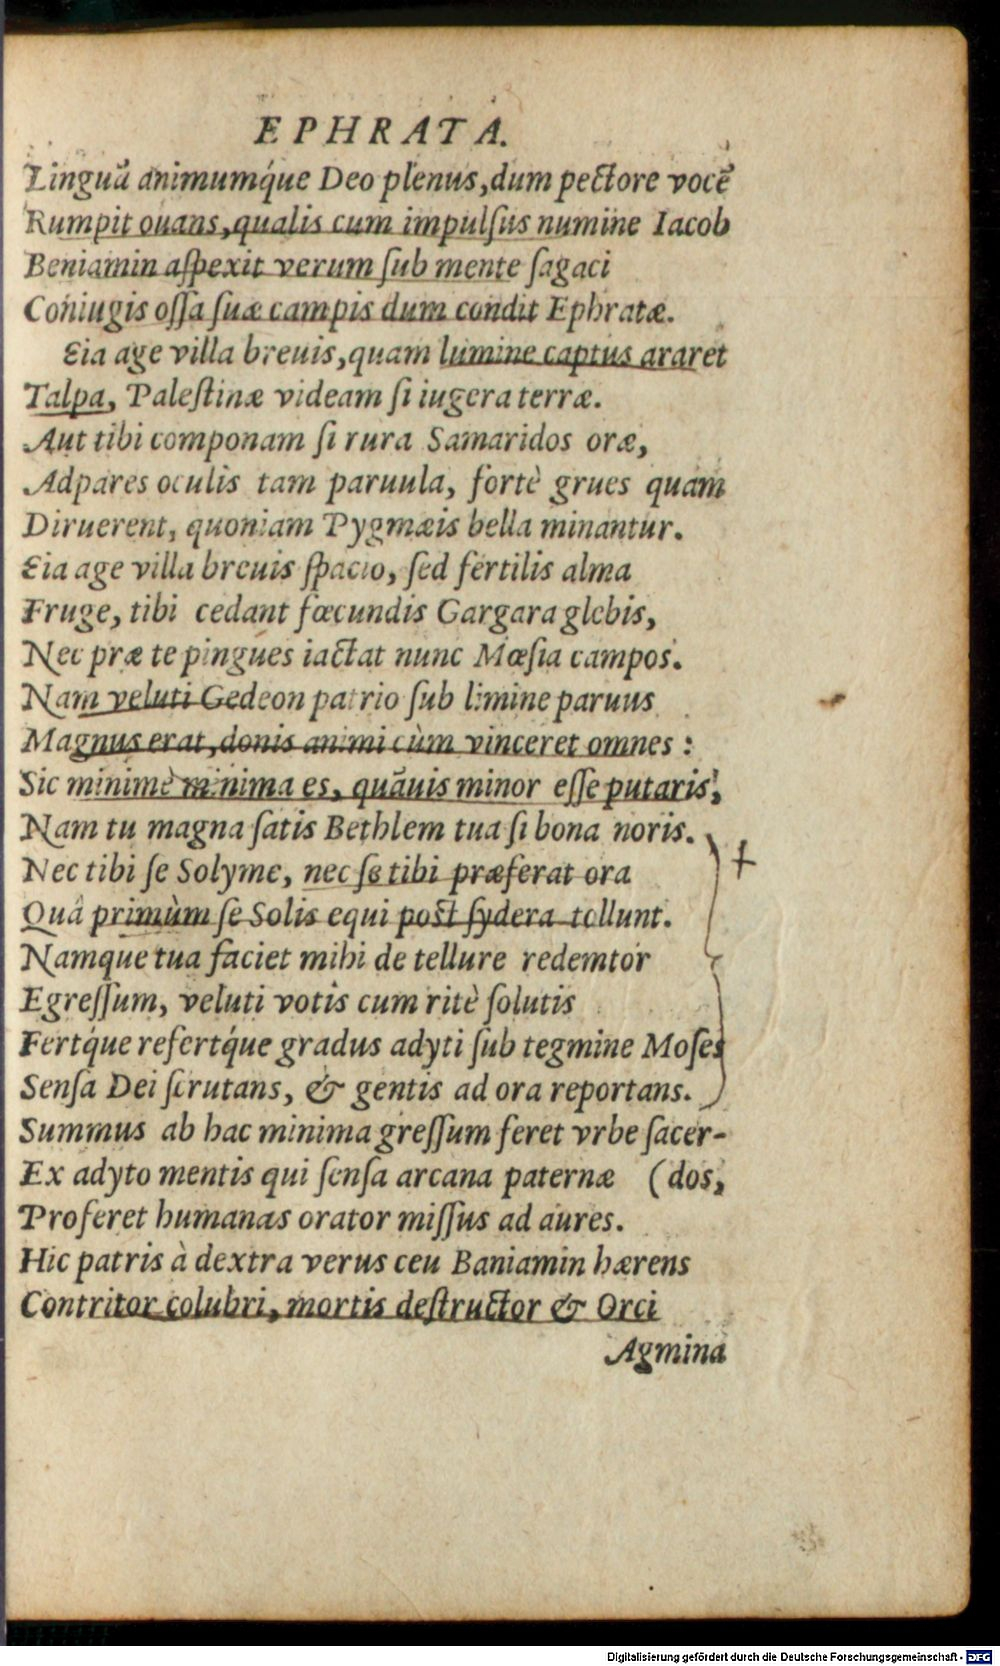 EPHRATA.
Linguā animumq́ue Deo plenus, dum pectore vocē
Rumpit ouans, qualis cum impulſus numine Iacob
Beniamin aſpexit verum ſub mente ſagaci
Coniugis oſſa ſuæ campis dum condit Ephratæ.
Eia age villa breuis, quam lumine captus araret
Talpa, Paleſtinæ videam ſi iugera terræ.
Aut tibi componam ſi rura Samaridos oræ,
Adpares oculis tam paruula, fortè grues quam
Diruerent, quoniam Pygmæis bella minantur.
Eia age villa breuis ſpacio, ſed fertilis alma
Fruge, tibi cedant fœcundis Gargara glebis,
Nec præ te pingues iactat nunc Mœſia campos.
Nam veluti Gedeon patrio ſub limine paruus
Magnus erat, donis animi cùm vinceret omnes:
Sic minimè minima es, quāuis minor eſſe putaris,
Nam tu magna ſatis Bethlem tua ſi bona noris.
Nec tibi ſe Solyme, nec ſe tibi præferat ora
Quâ primùm ſe Solis equi poſt ſydera tollunt.
Namque tua faciet mihi de tellure redemtor
Egreſſum, veluti votis cum ritè ſolutis
Fertq́ue refertq́ue gradus adyti ſub tegmine Moſes
Senſa Dei ſcrutans, & gentis ad ora reportans.
Summus ab hac minima greſſum feret vrbe ſacer-
Ex adyto mentis qui ſenſa arcana paternæ (dos,
Proferet humanas orator miſſus ad aures.
Hic patris à dextra verus ceu Baniamin hærens
Contritor colubri, mortis deſtructor & Orci
Agmina
Digitalisierung gefördert durch die Deutsche Forschungsgemeinschaft - DFG